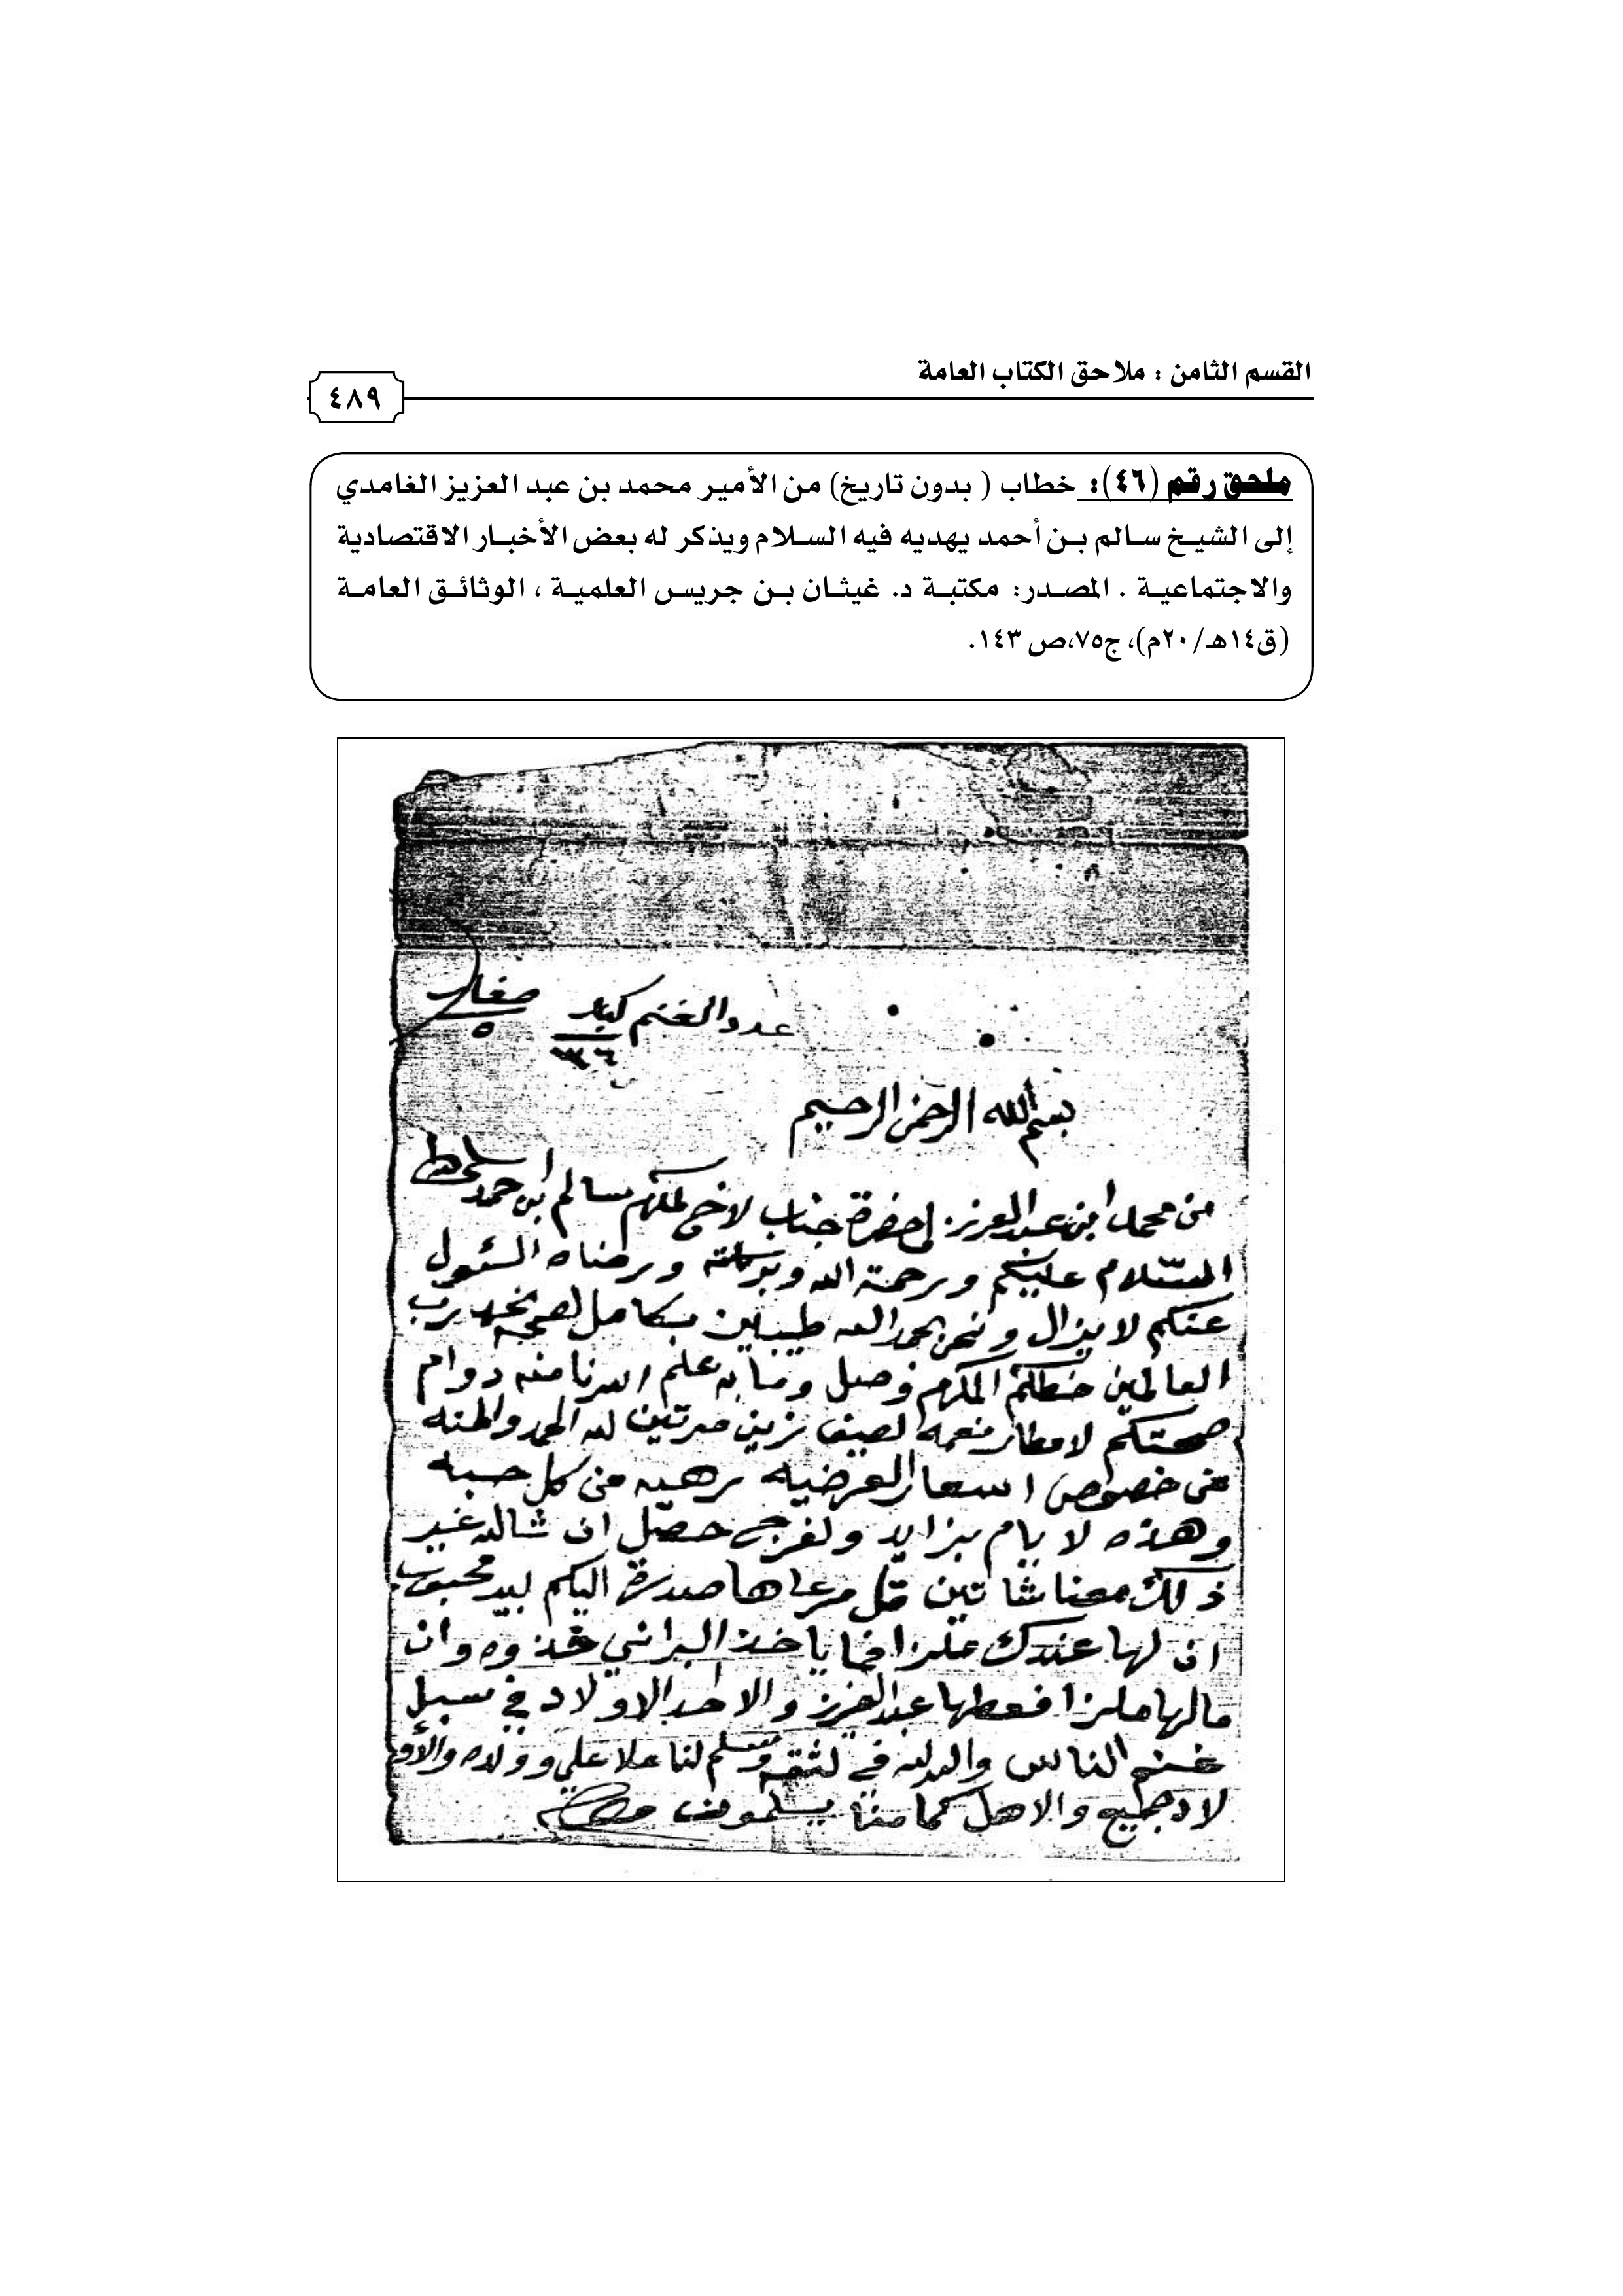 القسم الثامن : ملاحق الكتاب العامة
٤٨٩
ملحق رقم (٤٦): خطاب ( بدون تاريخ) من الأمير محمد بن عبد العزيز الغامدي
إلى الشيخ سالم بن أحمد يهديه فيه السلام ويذكر له بعض الأخبار الاقتصادية
والاجتماعية . المصدر: مكتبة د. غيثان بن جريس العلمية ، الوثائق العامة
(ق١٤هـ/٢٠م)، ج٧٥،ص ١٤٣.
عدد الغنم كبار صغار
٥
بسم الله الرحمن الرحيم
من محمد ابن عبد العزيز الى حضرة جناب لاخ لمكرم سالم ابن حمد
السلام عليكم ورحمة الله وبركاته ورضاه السئول
عنكم لا يزال ونحن بحمد الله طيبين بكامل لصحه نحمد رب
العالمين خطكم المكرم وصل وما به علم اسرنا منه دوام
صحتكم لامطار نعمه لصيف زين مرتين لله الحمد والمنه
من خصوص اسعار العرضيه رهيه من كل حسبه
وهذه لايام بزايد ولفرج حصل ان شالله غير
ذلك معنا شاتين قل مرعاها صدرة اليكم لبيد
ان لها عندك ملزا فما ياخذ البراني خذوه وان
مالها ملزا فعطها عبد العزيز والا احد الاولاد في سبيل
غنم الناس والله لله في لثقه وسلم لنا علا علي وولاده
لاد جميع والاهل كما منا يسلمون